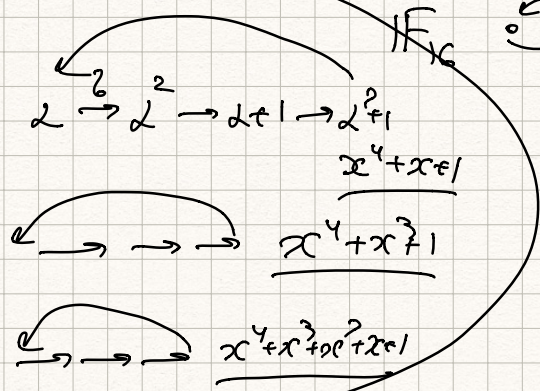 𝔽₁₆
α →^φ α² → α+1 → α²+1
x⁴+x+1
x⁴+x³+1
x⁴+x³+x²+x+1